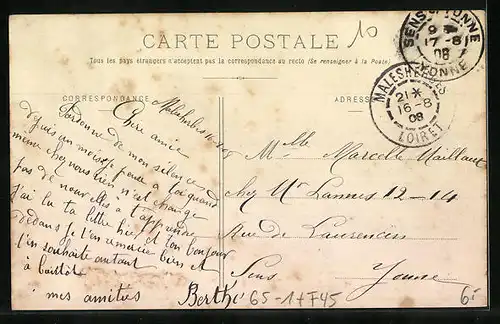 10
CARTE POSTALE
Tous les pays étrangers n'acceptent pas la correspondance au recto (Se renseigner à la Poste)
SENS-S-YONNE
17-8
08
YONNE
MALESHERBES
21 *
16-8
08
LOIRET
CORRESPONDANCE
ADRESSE
Chère amie
Pardonne de moi silence
depuis un mois
chez nous rien n'est changé
pas de nouvelles à t'apprendre
J'ai lu ta lettre hier et ton bonjour
dedans je t'en remercie bien et
t'en souhaite autant
à bientôt
mes amitiés
Berthe
Melle Marcelle Vaillant
chez Mr 12-14
Rue de Laurencin
Sens Yonne
65-17745
6.-